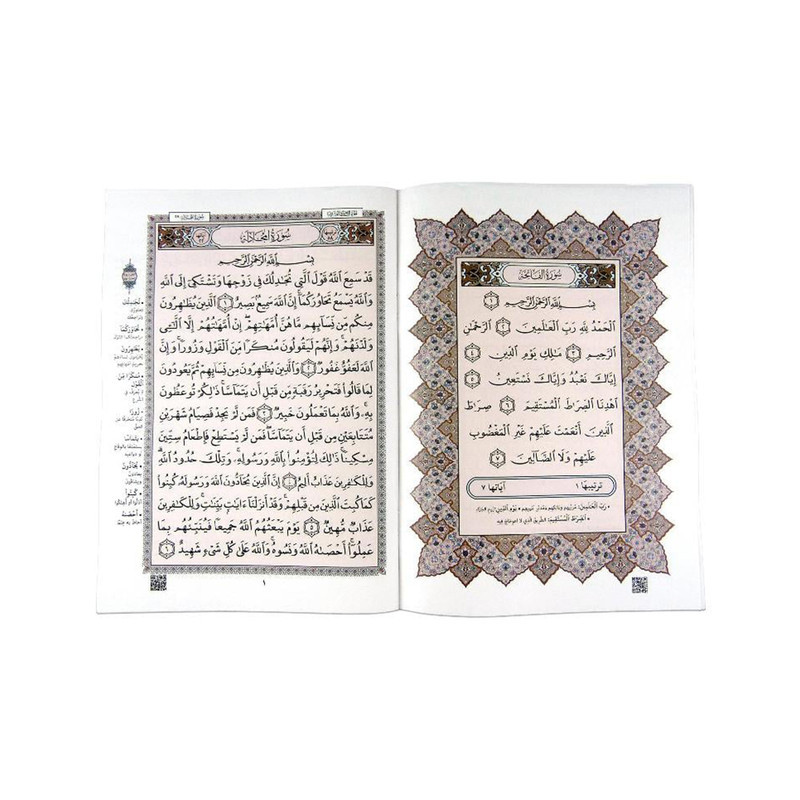 سُورَةُ الفَاتِحَةِ
بِسْمِ اللَّهِ الرَّحْمَٰنِ الرَّحِيمِ ١
الْحَمْدُ لِلَّهِ رَبِّ الْعَالَمِينَ ٢ الرَّحْمَٰنِ
الرَّحِيمِ ٣ مَالِكِ يَوْمِ الدِّينِ ٤
إِيَّاكَ نَعْبُدُ وَإِيَّاكَ نَسْتَعِينُ ٥
اهْدِنَا الصِّرَاطَ الْمُسْتَقِيمَ ٦ صِرَاطَ
الَّذِينَ أَنْعَمْتَ عَلَيْهِمْ غَيْرِ الْمَغْضُوبِ
عَلَيْهِمْ وَلَا الضَّالِّينَ ٧
ترتيبها ١ آياتها ٧
سُورَةُ المُجَادلة
بِسْمِ اللَّهِ الرَّحْمَٰنِ الرَّحِيمِ
قَدْ سَمِعَ اللَّهُ قَوْلَ الَّتِي تُجَادِلُكَ فِي زَوْجِهَا وَتَشْتَكِي إِلَى اللَّهِ
وَاللَّهُ يَسْمَعُ تَحَاوُرَكُمَا إِنَّ اللَّهَ سَمِيعٌ بَصِيرٌ ١ الَّذِينَ يُظَاهِرُونَ
مِنكُم مِّن نِّسَائِهِم مَّا هُنَّ أُمَّهَاتِهِمْ إِنْ أُمَّهَاتُهُمْ إِلَّا اللَّائِي
وَلَدْنَهُمْ وَإِنَّهُمْ لَيَقُولُونَ مُنكَرًا مِّنَ الْقَوْلِ وَزُورًا وَإِنَّ
اللَّهَ لَعَفُوٌّ غَفُورٌ ٢ وَالَّذِينَ يُظَاهِرُونَ مِن نِّسَائِهِمْ ثُمَّ يَعُودُونَ
لِمَا قَالُوا فَتَحْرِيرُ رَقَبَةٍ مِّن قَبْلِ أَن يَتَمَاسَّا ذَٰلِكُمْ تُوعَظُونَ
بِهِ وَاللَّهُ بِمَا تَعْمَلُونَ خَبِيرٌ ٣ فَمَن لَّمْ يَجِدْ فَصِيَامُ شَهْرَيْنِ
مُتَتَابِعَيْنِ مِن قَبْلِ أَن يَتَمَاسَّا فَمَن لَّمْ يَسْتَطِعْ فَإِطْعَامُ سِتِّينَ
مِسْكِينًا ذَٰلِكَ لِتُؤْمِنُوا بِاللَّهِ وَرَسُولِهِ وَتِلْكَ حُدُودُ اللَّهِ
وَلِلْكَافِرِينَ عَذَابٌ أَلِيمٌ ٤ إِنَّ الَّذِينَ يُحَادُّونَ اللَّهَ وَرَسُولَهُ كُبِتُوا
كَمَا كُبِتَ الَّذِينَ مِن قَبْلِهِمْ وَقَدْ أَنزَلْنَا آيَاتٍ بَيِّنَاتٍ وَلِلْكَافِرِينَ
عَذَابٌ مُّهِينٌ ٥ يَوْمَ يَبْعَثُهُمُ اللَّهُ جَمِيعًا فَيُنَبِّئُهُم بِمَا
عَمِلُوا أَحْصَاهُ اللَّهُ وَنَسُوهُ وَاللَّهُ عَلَىٰ كُلِّ شَيْءٍ شَهِيدٌ ٦
١